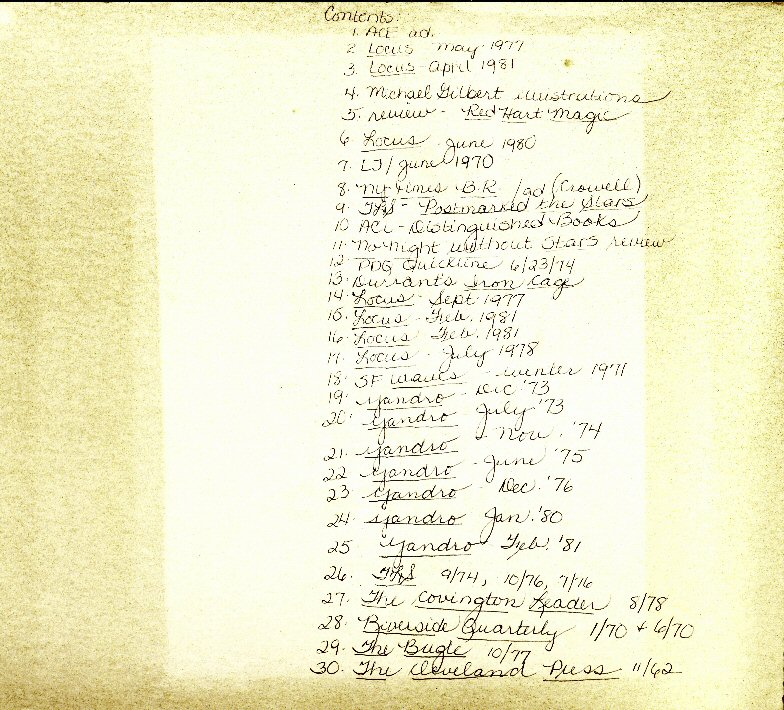 Contents:
1. ACE ad.
2. Locus May 1977
3. Locus - April 1981
4. Michael Gilbert illustrations
5. review - Red Hart Magic
6. Locus June 1980
7. LJ/June 1970
8. NY times B.R. /ad (Crowell)
9. - Postmarked the Stars
10. ACE - Distinguished Books
11. No Night Without Stars review
12. PDQ Quickline 6/23/74
13. Durrant's Iron Cage
14. Locus - Sept 1977
15. Locus - Feb. 1981
16. Locus Feb. 1981
17. Locus - July 1978
18. SF Waves - winter 1971
19. Yandro - Dec '73
20. Yandro July '73
21. Yandro - Nov. '74
22. Yandro - June '75
23. Yandro - Dec. '76
24. Yandro Jan. '80
25. Yandro - Feb. '81
26. 9/74, 10/76, 7/76
27. The Covington Leader 8/78
28. Riverside Quarterly 1/70 + 6/70
29. The Bugle 10/77
30. The Cleveland Press 11/62